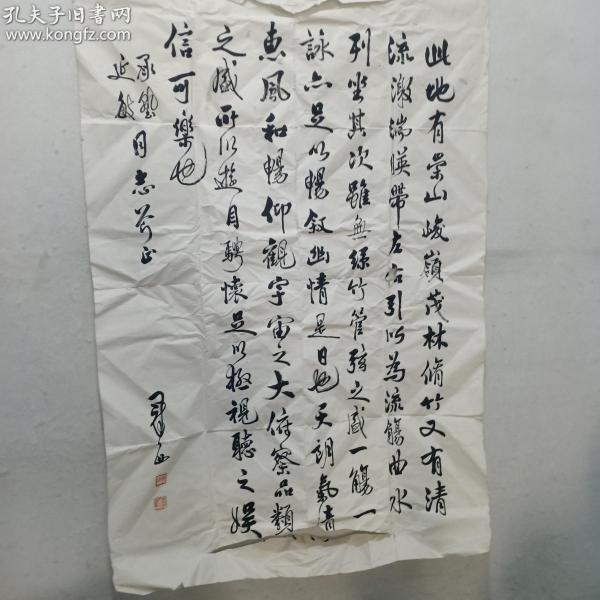 孔夫子旧书网
www.kongfz.com
此地有崇山峻嶺茂林脩竹又有清
流激湍暎帶左右引以為流觴曲水
列坐其次雖無絲竹管弦之盛一觴一
詠亦足以暢叙幽情是日也天朗氣清
惠風和暢仰觀宇宙之大俯察品類
之盛所以遊目騁懷足以極視聽之娱
信可樂也
同志斧正